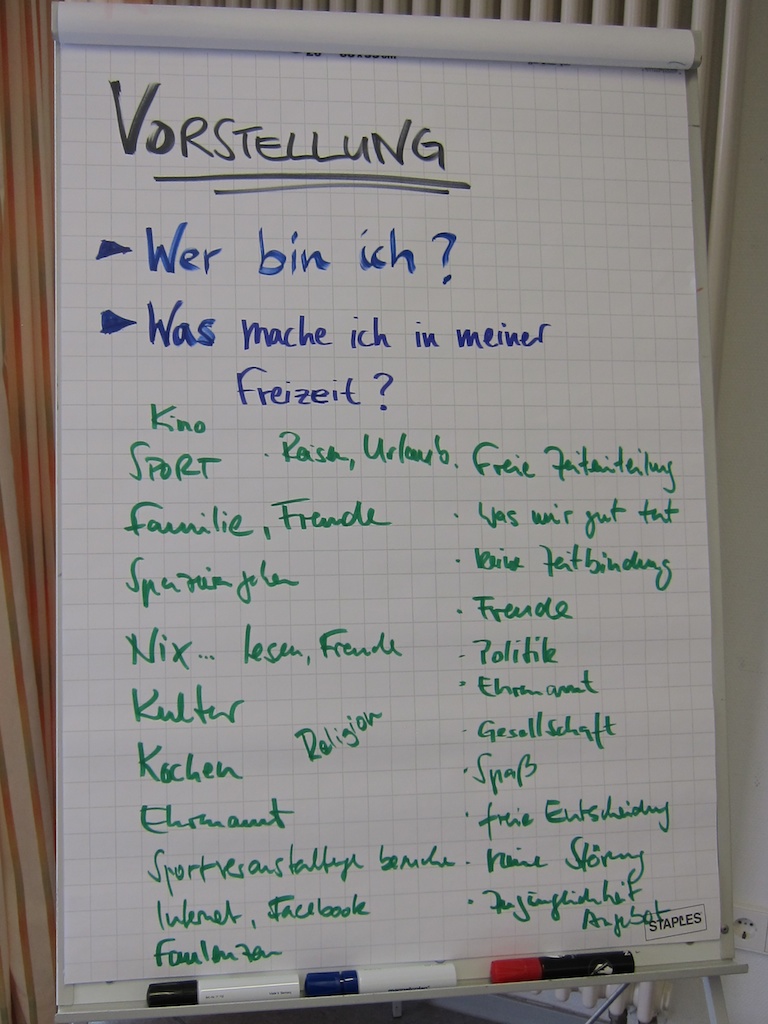 VORSTELLUNG
► Wer bin ich?
► Was mache ich in meiner
Freizeit?
Kino
SPORT
Familie, Freunde
Spazieren gehen
Nix... lesen, Freunde
Kultur
Kochen
Ehrenamt
Sportveranstaltungen besuchen
Internet, Facebook
Faulenzen
Religion
· Reisen, Urlaub
· Freie Zeiteinteilung
· Was mir gut tut
· keine Zeitbindung
· Freunde
- Politik
· Ehrenamt
· Gesellschaft
· Spaß
· freie Entscheidung
· keine Störung
· Zugänglichkeit
Angebot
STAPLES